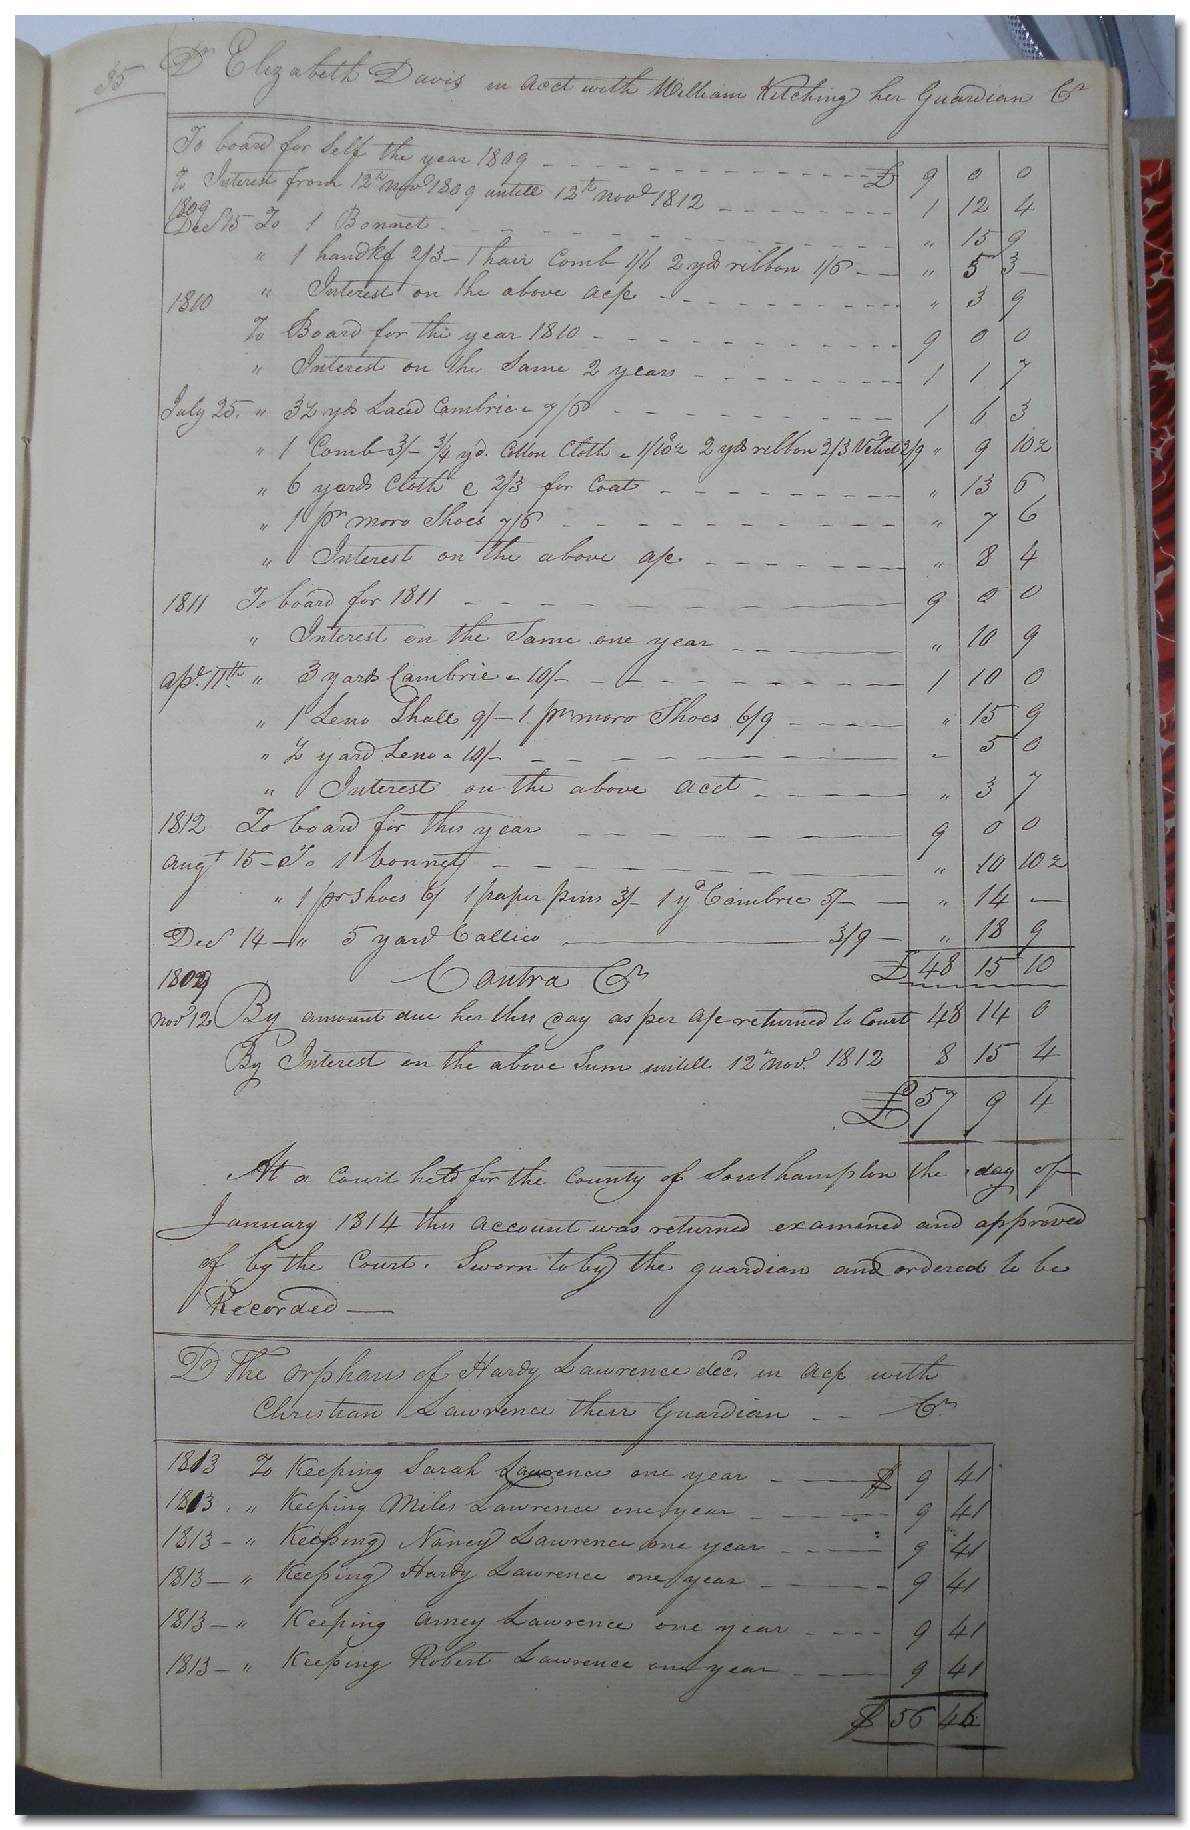 35
Dr Elizabeth Davis in acct with William Kitching her Guardian Cr
To board for self the year 1809 £ 9 0 0
To Interest from 12th Novr 1809 untill 12th Novr 1812 1 12 4
1809
Decr 15 To 1 Bonnet " 15 9
" 1 handkf 2/3 – 1 hair Comb 1/6 2 yds ribbon 1/6 " 5 3
" Interest on the above acp " 3 9
1810
To Board for the year 1810 9 0 0
" Interest on the Same 2 years 1 1 7
July 25. " 3½ yds Laced Cambric a 7/6 1 6 3
" 1 Comb 3/– ¾ yd. Cotton Cloth a 1/10½ 2 yds ribbon 2/3 Velvet 2/9 " 9 10½
" 6 yards Cloth @ 2/3 for Coat " 13 6
" 1 pr moro Shoes 7/6 " 7 6
" Interest on the above a/c " 8 4
1811 To board for 1811 9 0 0
" Interest on the Same one year " 10 9
apl. 11th. " 3 yards Cambric a 10/– 1 10 0
" 1 Leno Shall 9/– 1 pr moro Shoes 6/9 " 15 9
" ½ yard Leno a 10/– – 5 0
" Interest on the above acct " 3 7
1812 To board for this year 9 0 0
augt 15 – To 1 bonnet " 10 10½
" 1 pr Shoes 6/ 1 paper pins 3/– 1 yd Cambric 5/– " 14 –
Decr 14 – " 5 yard Callico 3/9 – " 18 9
£ 48 15 10
1809 Contra Cr
Novr 12 By amount due her this day as per a/c returned to Court 48 14 0
By Interest on the above Sum untill 12th Novr. 1812 8 15 4
£ 57 9 4
At a Court held for the County of Southampton the day of
January 1814 this account was returned examined and approved
of by the Court. Sworn to by the guardian and ordered to be
Recorded —
Dr The orphans of Hardy Lawrence decd. in acp with
Christian Lawrence their Guardian Cr
1813 To Keeping Sarah Lawrence one year $ 9 41
1813. " Keeping Miles Lawrence one year 9 41
1813 – " Keeping Nancy Lawrence one year 9 41
1813 – " Keeping Hardy Lawrence one year 9 41
1813 – " Keeping amey Lawrence one year 9 41
1813 – " Keeping Robert Lawrence one year 9 41
$ 56 46